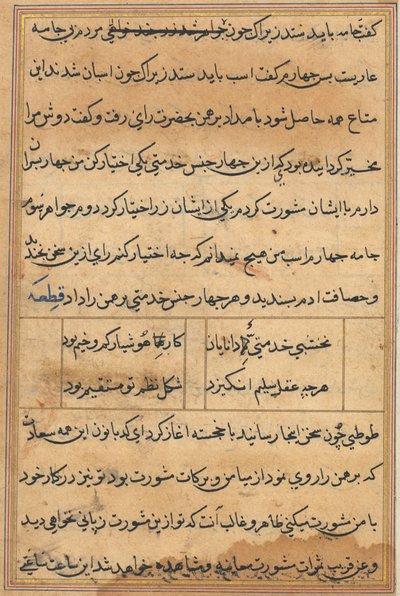 گفت جامه باید ستد زیراک چون جواهر شد زر خود خواهی مردم بی جامه
عاریت پس چهارم گفت اسب باید ستد زیراک چون اسبان شدند این
متاع همه حاصل شود بامداد برهمن بحضرت رای رفت و گفت دوش مرا
مخیر کردانیده بودکی ازین چهار جنس خدمتی یکی اختیار کن من چهار پسران
دارم با ایشان مشورت کردم یکی از ایشان زر اختیار کرد دوم جواهر سوم
جامه چهارم اسب من هیچ نمیدانم کرجه اختیار کنم رای ازین سخن بخندید
و حصافت ادم بسندید و هر چهار جنس خدمتی برهمن را داد قطعه
نخشبی خدمتی دانایان
کارها هوشیار کم و خیم بود
هرچه عقل سلیم انکیزد
شکل نظم تو مستقیم بود
طوطی چون سخن اینجا رسانید با خجسته اغاز کرد ای کدبانو این همه سعادت
که برهمن را روی نمود از میامن و برکات مشورت بود تو نیز در کار خود
با من مشورت میکنی ظاهر و غالب آنست که تو ازین مشورت زیانی نخواهی دید
و عن قریب ثمرات مشورت معاینه و مشاهده خواهد شد این ساعت ساعتی